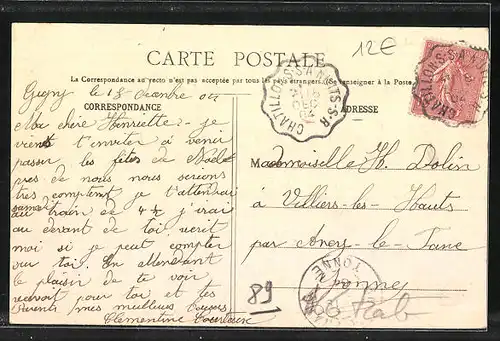 12€
CARTE POSTALE
La Correspondance au recto n'est pas acceptée par tous les pays étrangers. (Se renseigner à la Poste
CORRESPONDANCE
ADRESSE
CHATILLON-S-S A NUITS-S-R
le 18 Décembre
Ma chère Henriette - je
vient t'inviter à venir
passer les fêtes de Noël
pres de nous nous serions
très comptent je t'attendrai
samedi au train de 4h½ j'irai
au devant de toi ecrit
moi si je peut compter
sur toi. En attendant
le plaisir de te voir
recevoit pour toi et tes
Parents mes meilleurs
Clementine
Mademoiselle H. Dolin
à Villiers-les-Hauts
par Ancy-le-Fane
Yonne
89
Rab